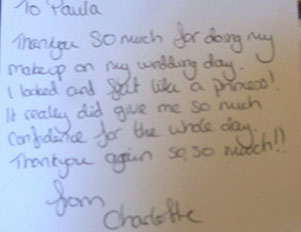 To Paula
Thankyou so much for doing my
makeup on my wedding day.
I looked and felt like a princess!
It really did give me so much
confidence for the whole day.
Thankyou again so, so much!!
from
Charlotte